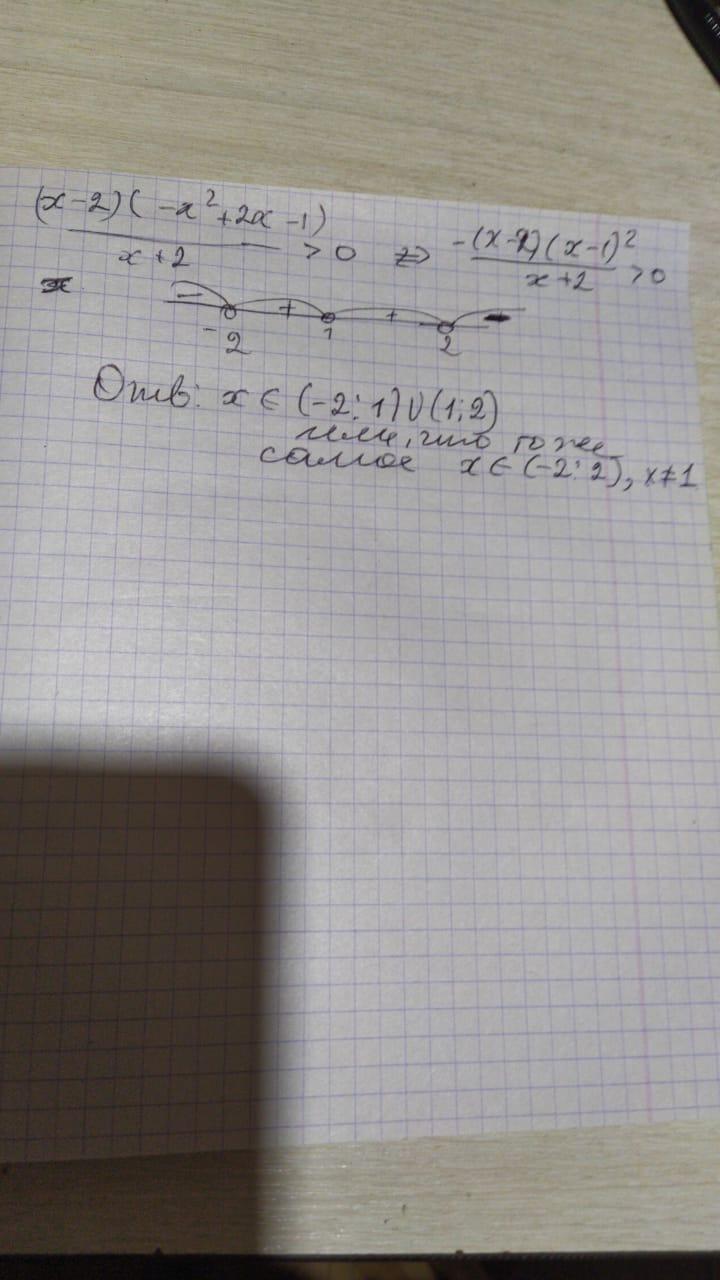 (x-2)(-x²+2x-1)
x+2 > 0 <=> -(x-2)(x-1)²
x+2 > 0
- + + -
-2 1 2
Отв: x ∈ (-2; 1)∪(1; 2)
или, что то же
самое x ∈ (-2; 2), x≠1